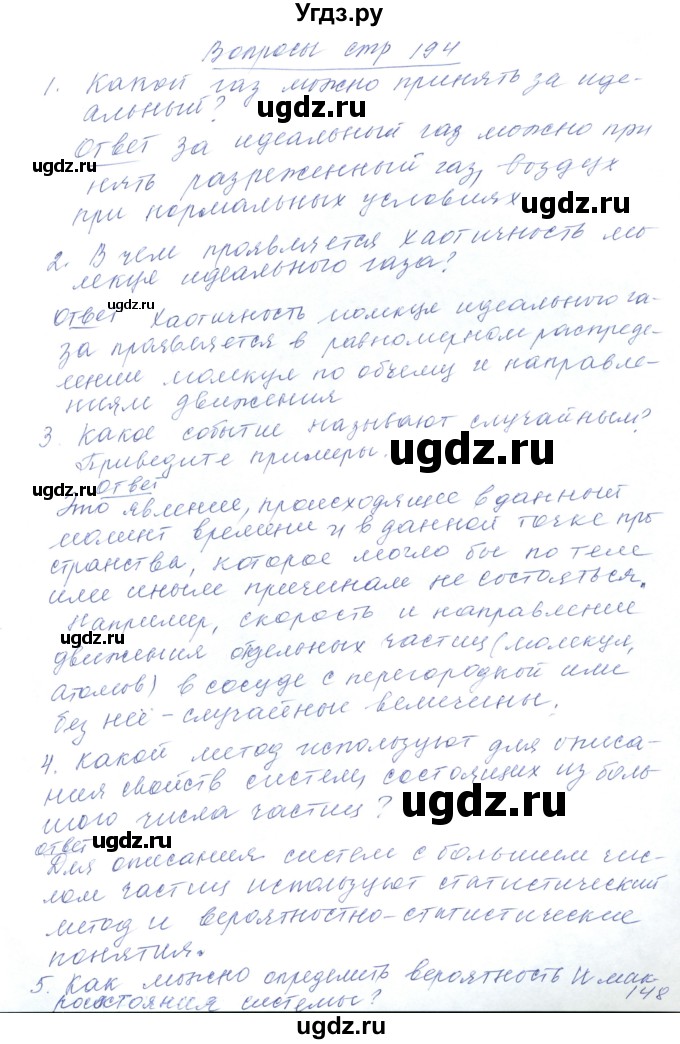 Угдз.ру
Вопросы стр 194
1. Какой газ можно принять за иде-
альный?
ugdz.ru
Ответ За идеальный газ можно при
ugdz.ru
нять разреженный газ, воздух
при нормальных условиях
ugdz.ru
2. В чем проявляется хаотичность мо
лекул идеального газа?
ugdz.ru
ответ Хаотичность молекул идеального га-
за проявляется в равномерном распреде-
лении молекул по объему и направле-
ниям движения
3. Какое событие называют случайным?
Приведите примеры.
ugdz.ru
ответ
ugdz.ru
Это явление, происходящее в данный
момент времени и в данной точке про
странства, которое могло бы по тем
или иным причинам не состояться.
Например, скорость и направление
ugdz.ru
движения отдельных частиц (молекул,
атомов) в сосуде с перегородкой или
без неё - случайные величины.
4. Какой метод используют для описа-
ния свойств систем, состоящих из боль-
шого числа частиц?
ugdz.ru
ответ
ugdz.ru
Для описания систем с большим чис-
лом частиц используют статистический
метод и вероятностно-статистические
понятия.
5. Как можно определить вероятность мак-
росостояния системы?
148
ugdz.ru